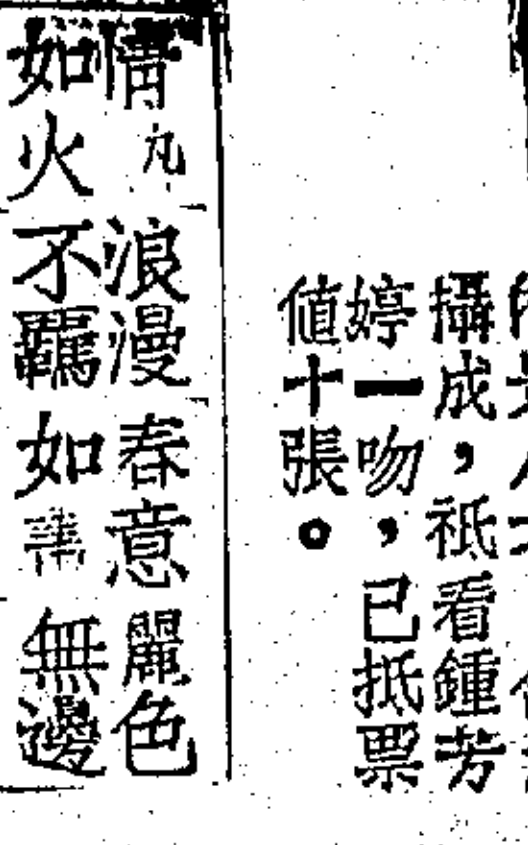 攝成，祇看鍾芳
婷一吻，已抵票
值十張。
情 浪漫 春意 麗色
如火 不羈 如 無邊